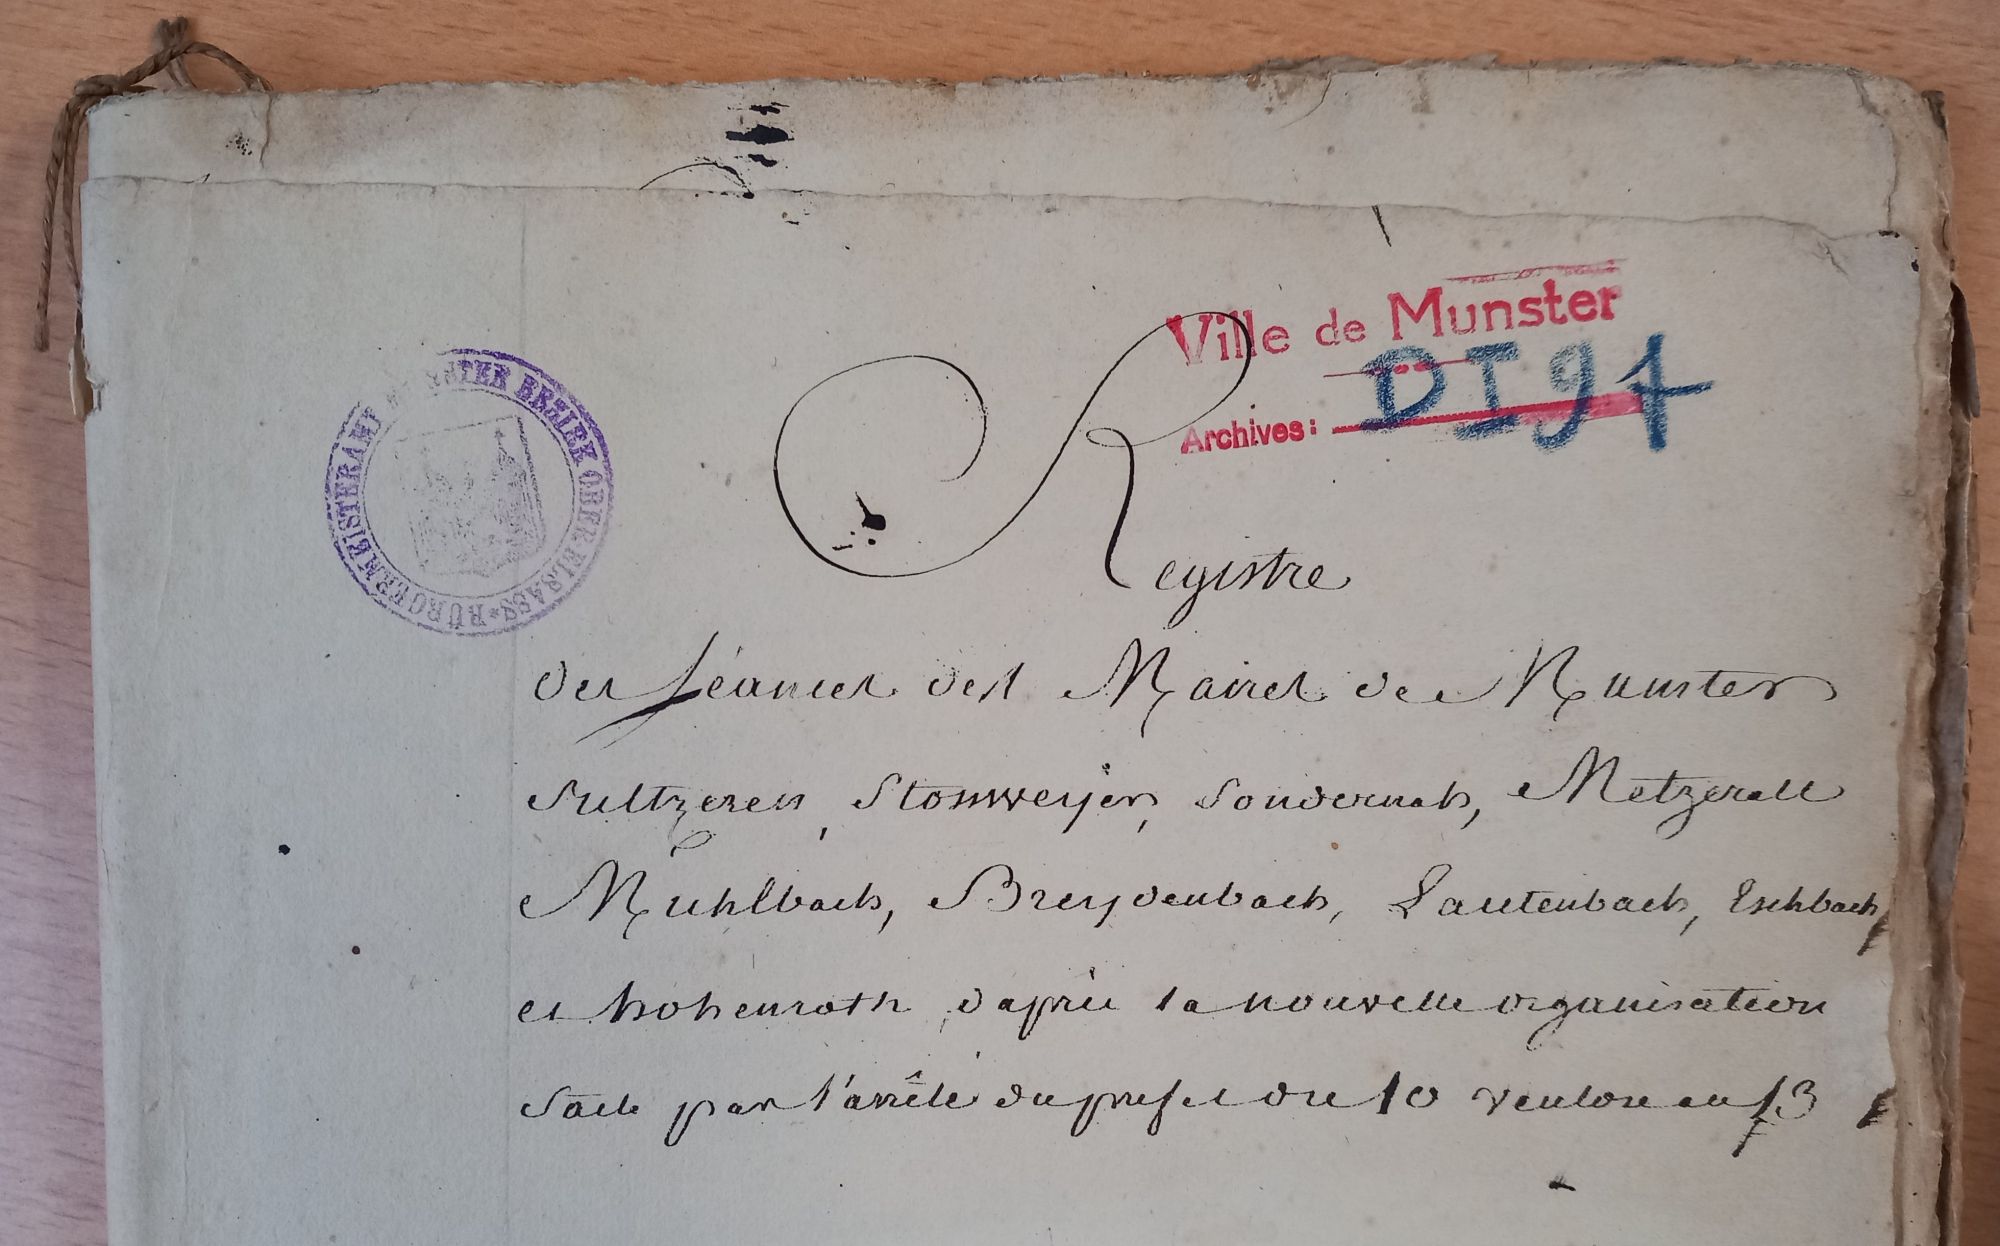 Ville de Munster
Archives: DI 97
BÜRGERMEISTERAMT MÜNSTER BEZIRK OBER ELSASS
Registre
des séances des Maires de Munster
Sultzeren, Stossweyer, Sondernach, Metzerall
Muhlbach, Breydenbach, Lautenbach, Eschbach
et hohenroth, d'après la nouvelle organisation
par l'arrêté du prefet du 10 ventose an 13